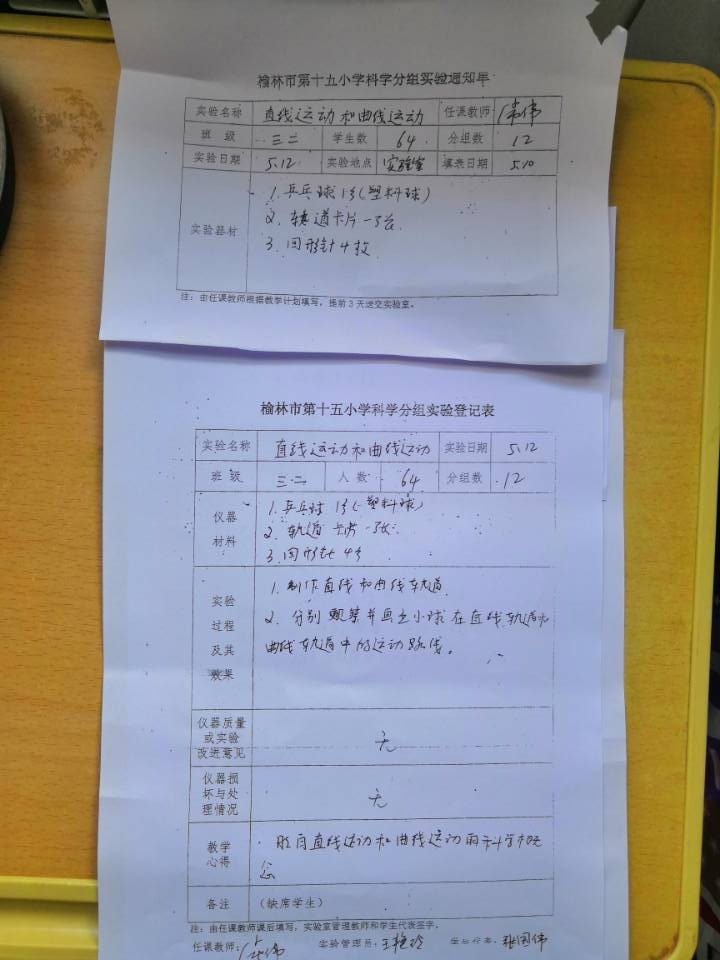 榆林市第十五小学科学分组实验通知单
实验名称 直线运动和曲线运动 任课教师 常伟
班 级 三二 学生数 64 分组数 12
实验日期 5.12 实验地点 实验室 填表日期 5.10
实验器材
1.乒乓球1个(塑料球)
2.轨道卡片一张
3.回形针4枚
注：由任课教师根据教学计划填写，提前3天送交实验室。
榆林市第十五小学科学分组实验登记表
实验名称 直线运动和曲线运动 实验日期 5.12
班 级 三.二 人 数 64 分组数 12
仪器
材料
1.乒乓球1个(塑料球)
2.轨道卡片一张
3.回形针4个
实验
过程
及其
效果
1.制作直线和曲线轨道.
2.分别观察并画出小球在直线轨道和
曲线轨道中的运动路线。
仪器质量
或实验
改进意见
无
仪器损
坏与处
理情况
无
教学
心得
明白直线运动和曲线运动的科学概
念
备注 （缺席学生）
注：由任课教师课后填写，实验室管理教师和学生代表签字。
任课教师： 常伟 实验管理员：王艳玲 学生代表：张国伟